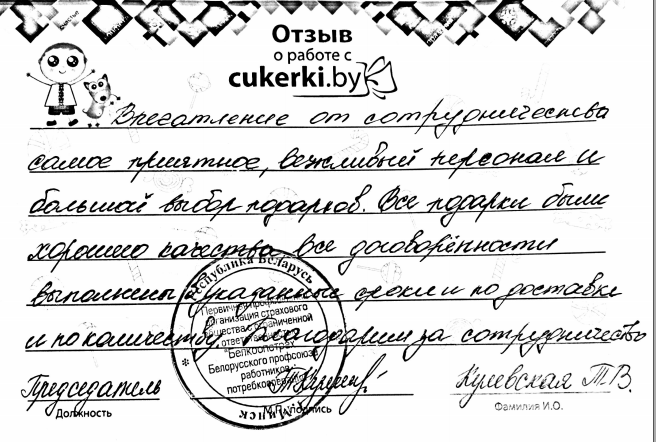 Отзыв
о работе с
cukerki.by
Впечатление от сотрудничества
самое приятное, вежливый персонал и
большой выбор подарков. Все подарки были
хорошего качества, все договорённости
выполнены указанные сроки и по доставке
и по количеству. Благодарим за сотрудничество
Председатель
Должность
М.П. подпись
Кулевская Т.В.
Фамилия И.О.
Республика Беларусь
Первичная
организация страхового
общества с ограниченной
"Белкоопстрах"
Белорусского профсоюза
работников
потребкооперации
г. Минск